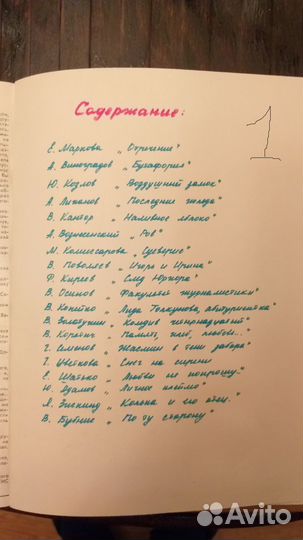 Содержание:
1
Е. Маркова „Отречение"
А. Виноградов „Бутафория"
Ю. Козлов „Воздушный замок"
А. Лиханов „Последние холода"
В. Кантор „Наливное яблоко"
А. Вознесенский „Ров"
М. Комиссарова „Суеверие"
В. Поволяев „Игорь и Ирина"
Ф. Киреев „След Юрхора"
В. Осинов „Факультет журналистики"
В. Конейко „Лида Толкунова, абитуриентка"
В. Золотухин „Комдив
В. Корнонг „Память, хлеб, любовь..."
Г. Семенов „Жасмин в тени забора"
Г. Цветкова „Снег на сирени
Е. Шатько „Любви не попрошу"
Ю. Адамов „Личное клеймо"
Л. Зискинд „Колька и его отец."
В. Бубнис „По ту сторону"
Avito